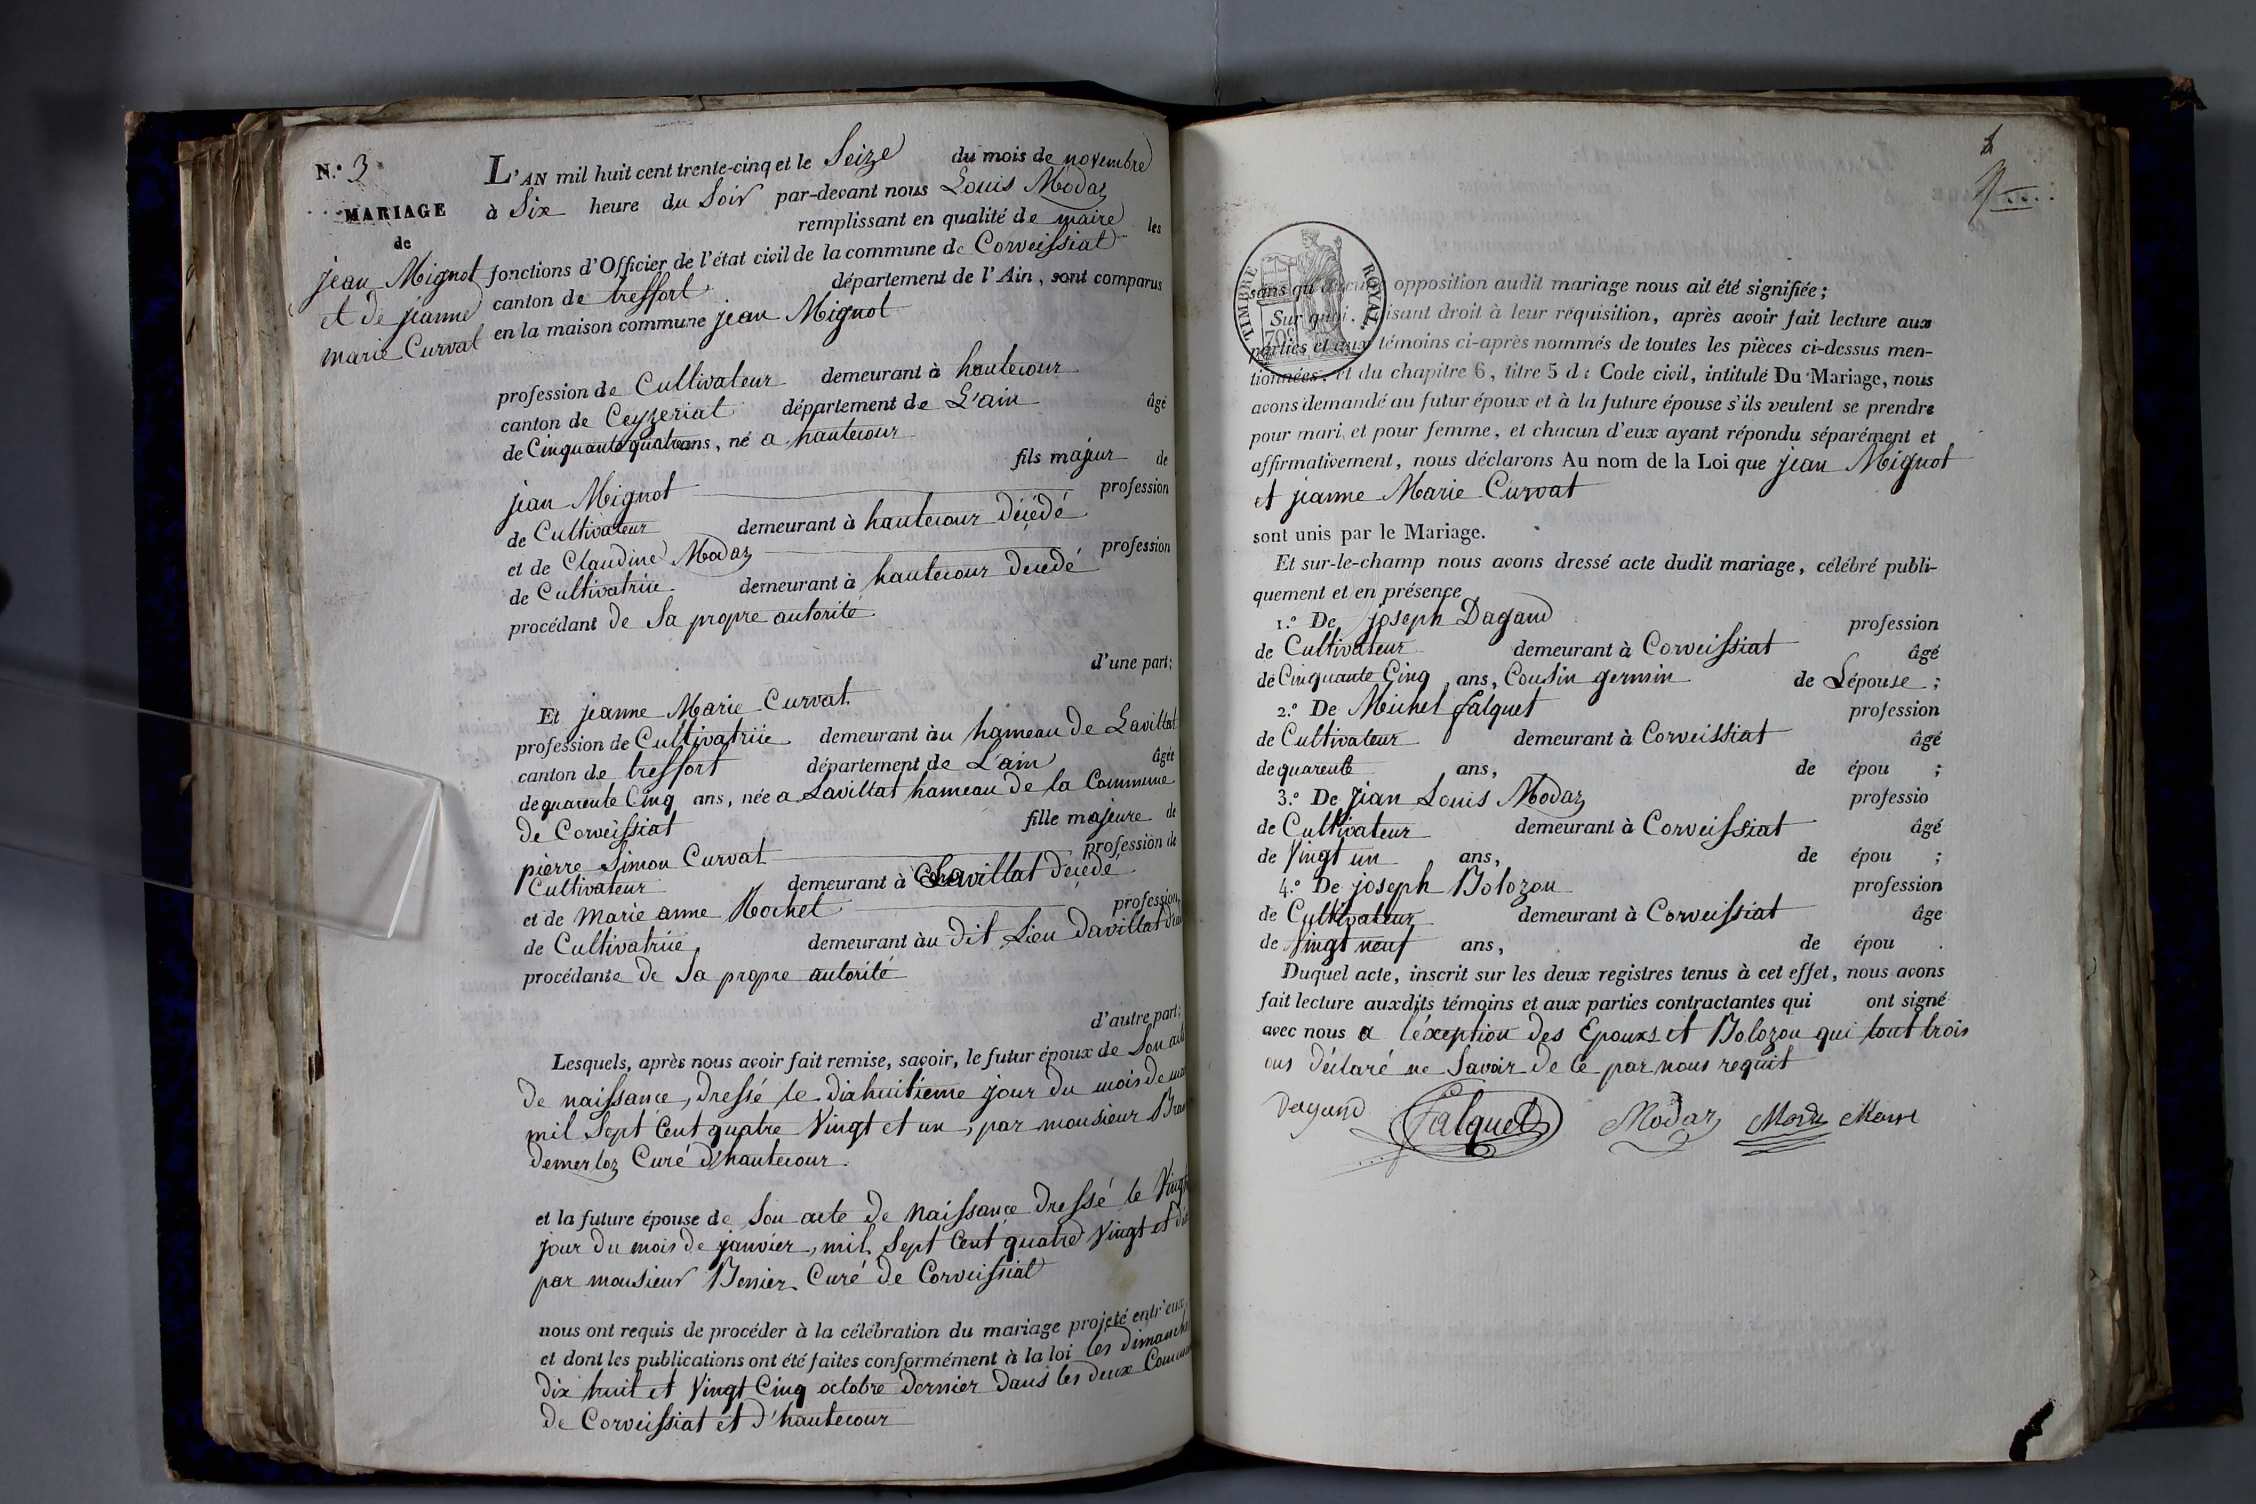 N.º 3
MARIAGE
de
jean Mignot
et de jeanne
marie Curvat
L'AN mil huit cent trente-cinq et le Seize du mois de novembre
à Six heure du Soir par-devant nous Louis Modaz
remplissant en qualité de maire les
fonctions d'Officier de l'état civil de la commune de Corveissiat
canton de treffort département de l'Ain, sont comparus
en la maison commune jean Mignot
profession de Cultivateur demeurant à hautecour
canton de Ceyzeriat département de L'ain âgé
de Cinquante quatre ans, né a hautecour
fils majeur de
jean Mignot profession
de Cultivateur demeurant à hautecour décédé
et de Claudine Modaz profession
de Cultivatrice demeurant à hautecour decedé
procédant de Sa propre autorité
d'une part;
Et jeanne Marie Curvat
profession de Cultivatriie demeurant àu hameau de Lavillat
canton de treffort département de L'ain âgée
de quarente Cinq ans, née a Lavillat hameau de la Commune
de Corveissiat fille majeure de
pierre Simon Curvat profession de
Cultivateur demeurant à Lavillat décédé
et de Marie anne Rochet profession
de Cultivatriie demeurant àu dit Lieu Davillat
procédante de Sa propre autorité
d'autre part;
Lesquels, après nous avoir fait remise, savoir, le futur époux de Son
de naissance, dressé le dixhuitieme jour du mois de
mil Sept Cent quatre Vingt et un, par monsieur
demerloz Curé d'hautecour
et la future épouse de Son acte de Naissance dressé le Vingt
jour du mois de janvier, mil Sept Cent quatre Vingt et
par monsieur Benier Curé de Corveissiat
nous ont requis de procéder à la célébration du mariage projeté entr'eux
et dont les publications ont été faites conformément à la loi les dimanche
dix huit et Vingt Cinq octobre dernier dans les deux
de Corveissiat et d'hautecour
TIMBRE ROYAL
70
sans qu'aucune opposition audit mariage nous ait été signifiée;
Sur quoi, faisant droit à leur réquisition, après avoir fait lecture aux
parties et aux témoins ci-après nommés de toutes les pièces ci-dessus men-
tionnées, et du chapitre 6, titre 5 du Code civil, intitulé Du Mariage, nous
avons demandé au futur époux et à la future épouse s'ils veulent se prendre
pour mari et pour femme, et chacun d'eux ayant répondu séparément et
affirmativement, nous déclarons Au nom de la Loi que jean Mignot
et jeanne Marie Curvat
sont unis par le Mariage.
Et sur-le-champ nous avons dressé acte dudit mariage, célébré publi-
quement et en présence
1.º De joseph Dagand profession
de Cultivateur demeurant à Corveissiat âgé
de Cinquante Cinq ans, Cousin germin de Lépouse;
2.º De Michel falquet profession
de Cultivateur demeurant à Corveissiat âgé
de quarente ans, de épou ;
3.º De jean Louis Modaz professio
de Cultivateur demeurant à Corveissiat âgé
de Vingt un ans, de épou ;
4.º De joseph Bolozon profession
de Cultivateur demeurant à Corveissiat âge
de Vingt neuf ans, de épou .
Duquel acte, inscrit sur les deux registres tenus à cet effet, nous avons
fait lecture auxdits témoins et aux parties contractantes qui ont signé
avec nous a léxeption des Epouxs et Bolozon qui tout trois
ons déclaré ne Savoir de ce par nous requit
Dagand Falquet Modaz Modaz Maire